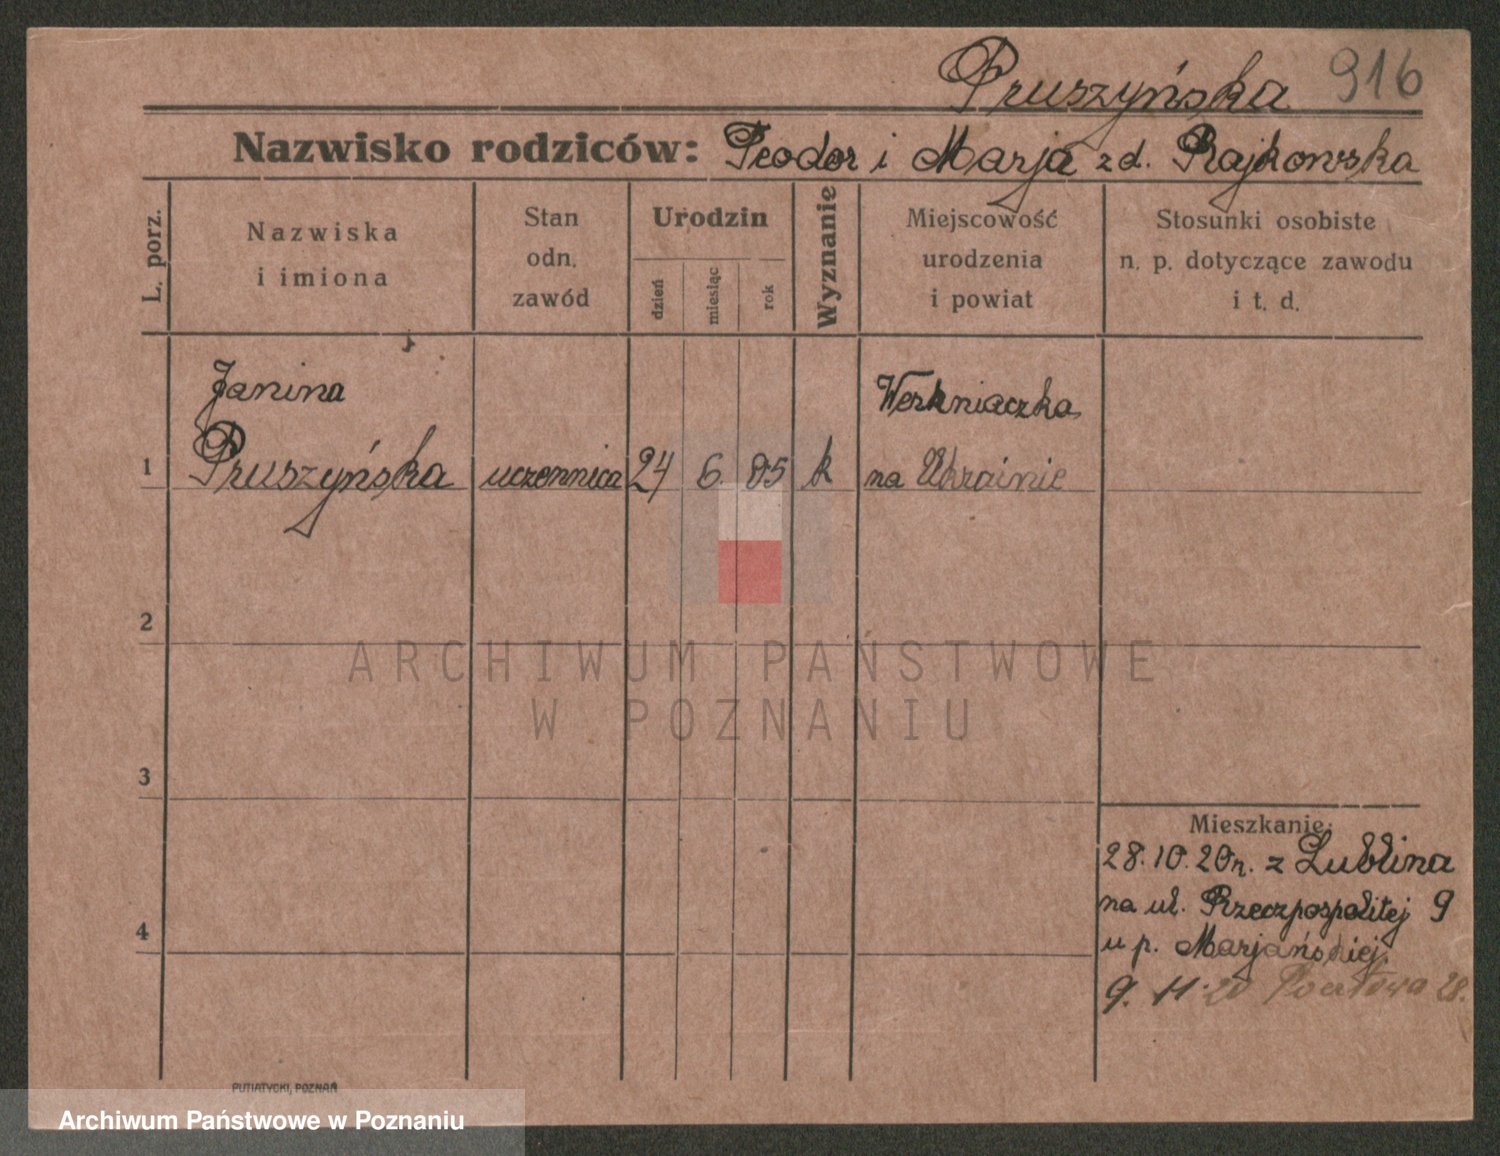 Pruszyńska 916
Nazwisko rodziców: Teodor i Marja z d. Rajkowska
L. porz.
Nazwiska
i imiona
Stan
odn.
zawód
Urodzin
dzień
miesiąc
rok
Wyznanie
Miejscowość
urodzenia
i powiat
Stosunki osobiste
n. p. dotyczące zawodu
i t. d.
Janina Werkniaczka
1 Pruszyńska uczennica 24 6. 05 k na Ukrainie
2
ARCHIWUM PAŃSTWOWE
W POZNANIU
3
Mieszkanie:
28.10.20r. z Lublina
na ul. Rzeczpospolitej 9
4
u p. Marjańskiej.
9. 11. 20 Pocztowa 28.
PUTIATYCKI, POZNAŃ
Archiwum Państwowe w Poznaniu